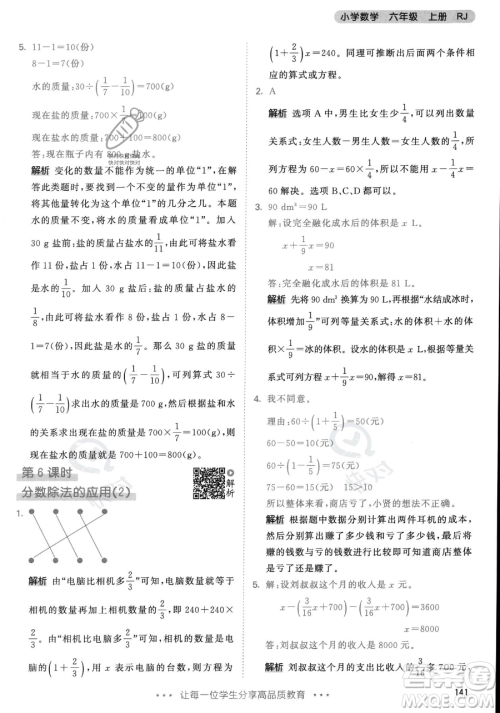 小学数学 六年级 上册 RJ
5. 11-1=10(份) 8-1=7(份)
8-1=7(份)
水的质量:30÷(1/7-1/10)=700(g)
原来盐的质量:700×1/10=70(g)
现在盐水的质量:700+70+30=800(g)
答:现在瓶子内有800 g 盐水。
解析 变化的数量不能作为统一的单位“1”,在解
答此类题时,要找到一个不变的量作为单位
“1”,将其他量转化为占单位“1”的几分之几。本
题水的质量不变,把水的质量看作单位“1”。加
入30 g盐前,盐的质量占盐水质量的1/11,即盐
占1份,盐水占11份,水占10份,则盐的质量是
水的1/10。加入30 g盐后,盐的质量占盐水的
1/8,即盐占1份,盐水占8份,水占7份,则盐的
质量是水的1/7。那么30 g盐占水的质量的
(1/7-1/10),由“水的质量×(1/7-1/10)=30”可用
30÷(1/7-1/10)求出水的质量是700 g,再根据
前后的关系求出现在盐水的质量。
第6课时
分数除法的应用(2)
解析
1.
解析 由“电脑比相机多2/3”可知,电脑数量=相
机数量×(1+2/3),即240÷(1+2/3);由“相机
比电脑多2/3”可知,相机数量=电脑数量×
(1+2/3),设电脑有x台,列方程为
(1+2/3)x=240。同理可推断出后面两个条件相
应的算式或方程。
2. A
解析 选项A中,男生比女生少1/4,可得到的数
量关系是:女生人数-男生人数=女生人数×1/4,所
列方程为60-x=60×1/4,整理得x+60×1/4=
60解决。故选项B、C、D都可以。
3. 90 dm³=90 L
解:设完全融化成水后的体积是x L。
x+1/9x=90
x=81
答:完全融化成水后的体积是81 L。
解析 先将90 dm³换算为90 L,根据“水结成冰时,
体积增加1/9”可列等量关系式:水的体积+水的
体积×1/9=冰的体积。设水的体积为x L,根据
关系式可列方程x+1/9x=90,求解即可。
4. 我不同意。
理由:60÷(1+1/5)=50(元)
60-50=10(元)
60÷(1-1/5)=75(元)
75-60=15(元) 15>10
所以,整体来看,商店亏了,小贤的想法不正确。
解析 本题需要先求出两个耳机的成本价,再计
算出分别赚了多少元和亏了多少元,最后对比
赚的钱数与亏的钱数的大小,如果赚的钱数大于
亏的钱数就是赚了,反之则亏了。
5. 解:设刘叔叔这个月的收入是x元。
x-3/16x-(3/16x-600)=3600
x=4800
答:刘叔叔这个月的收入是4800元。
解析 刘叔叔这个月的支出比收入的3/16少600元,
让每一位学生分享高品质教育
141